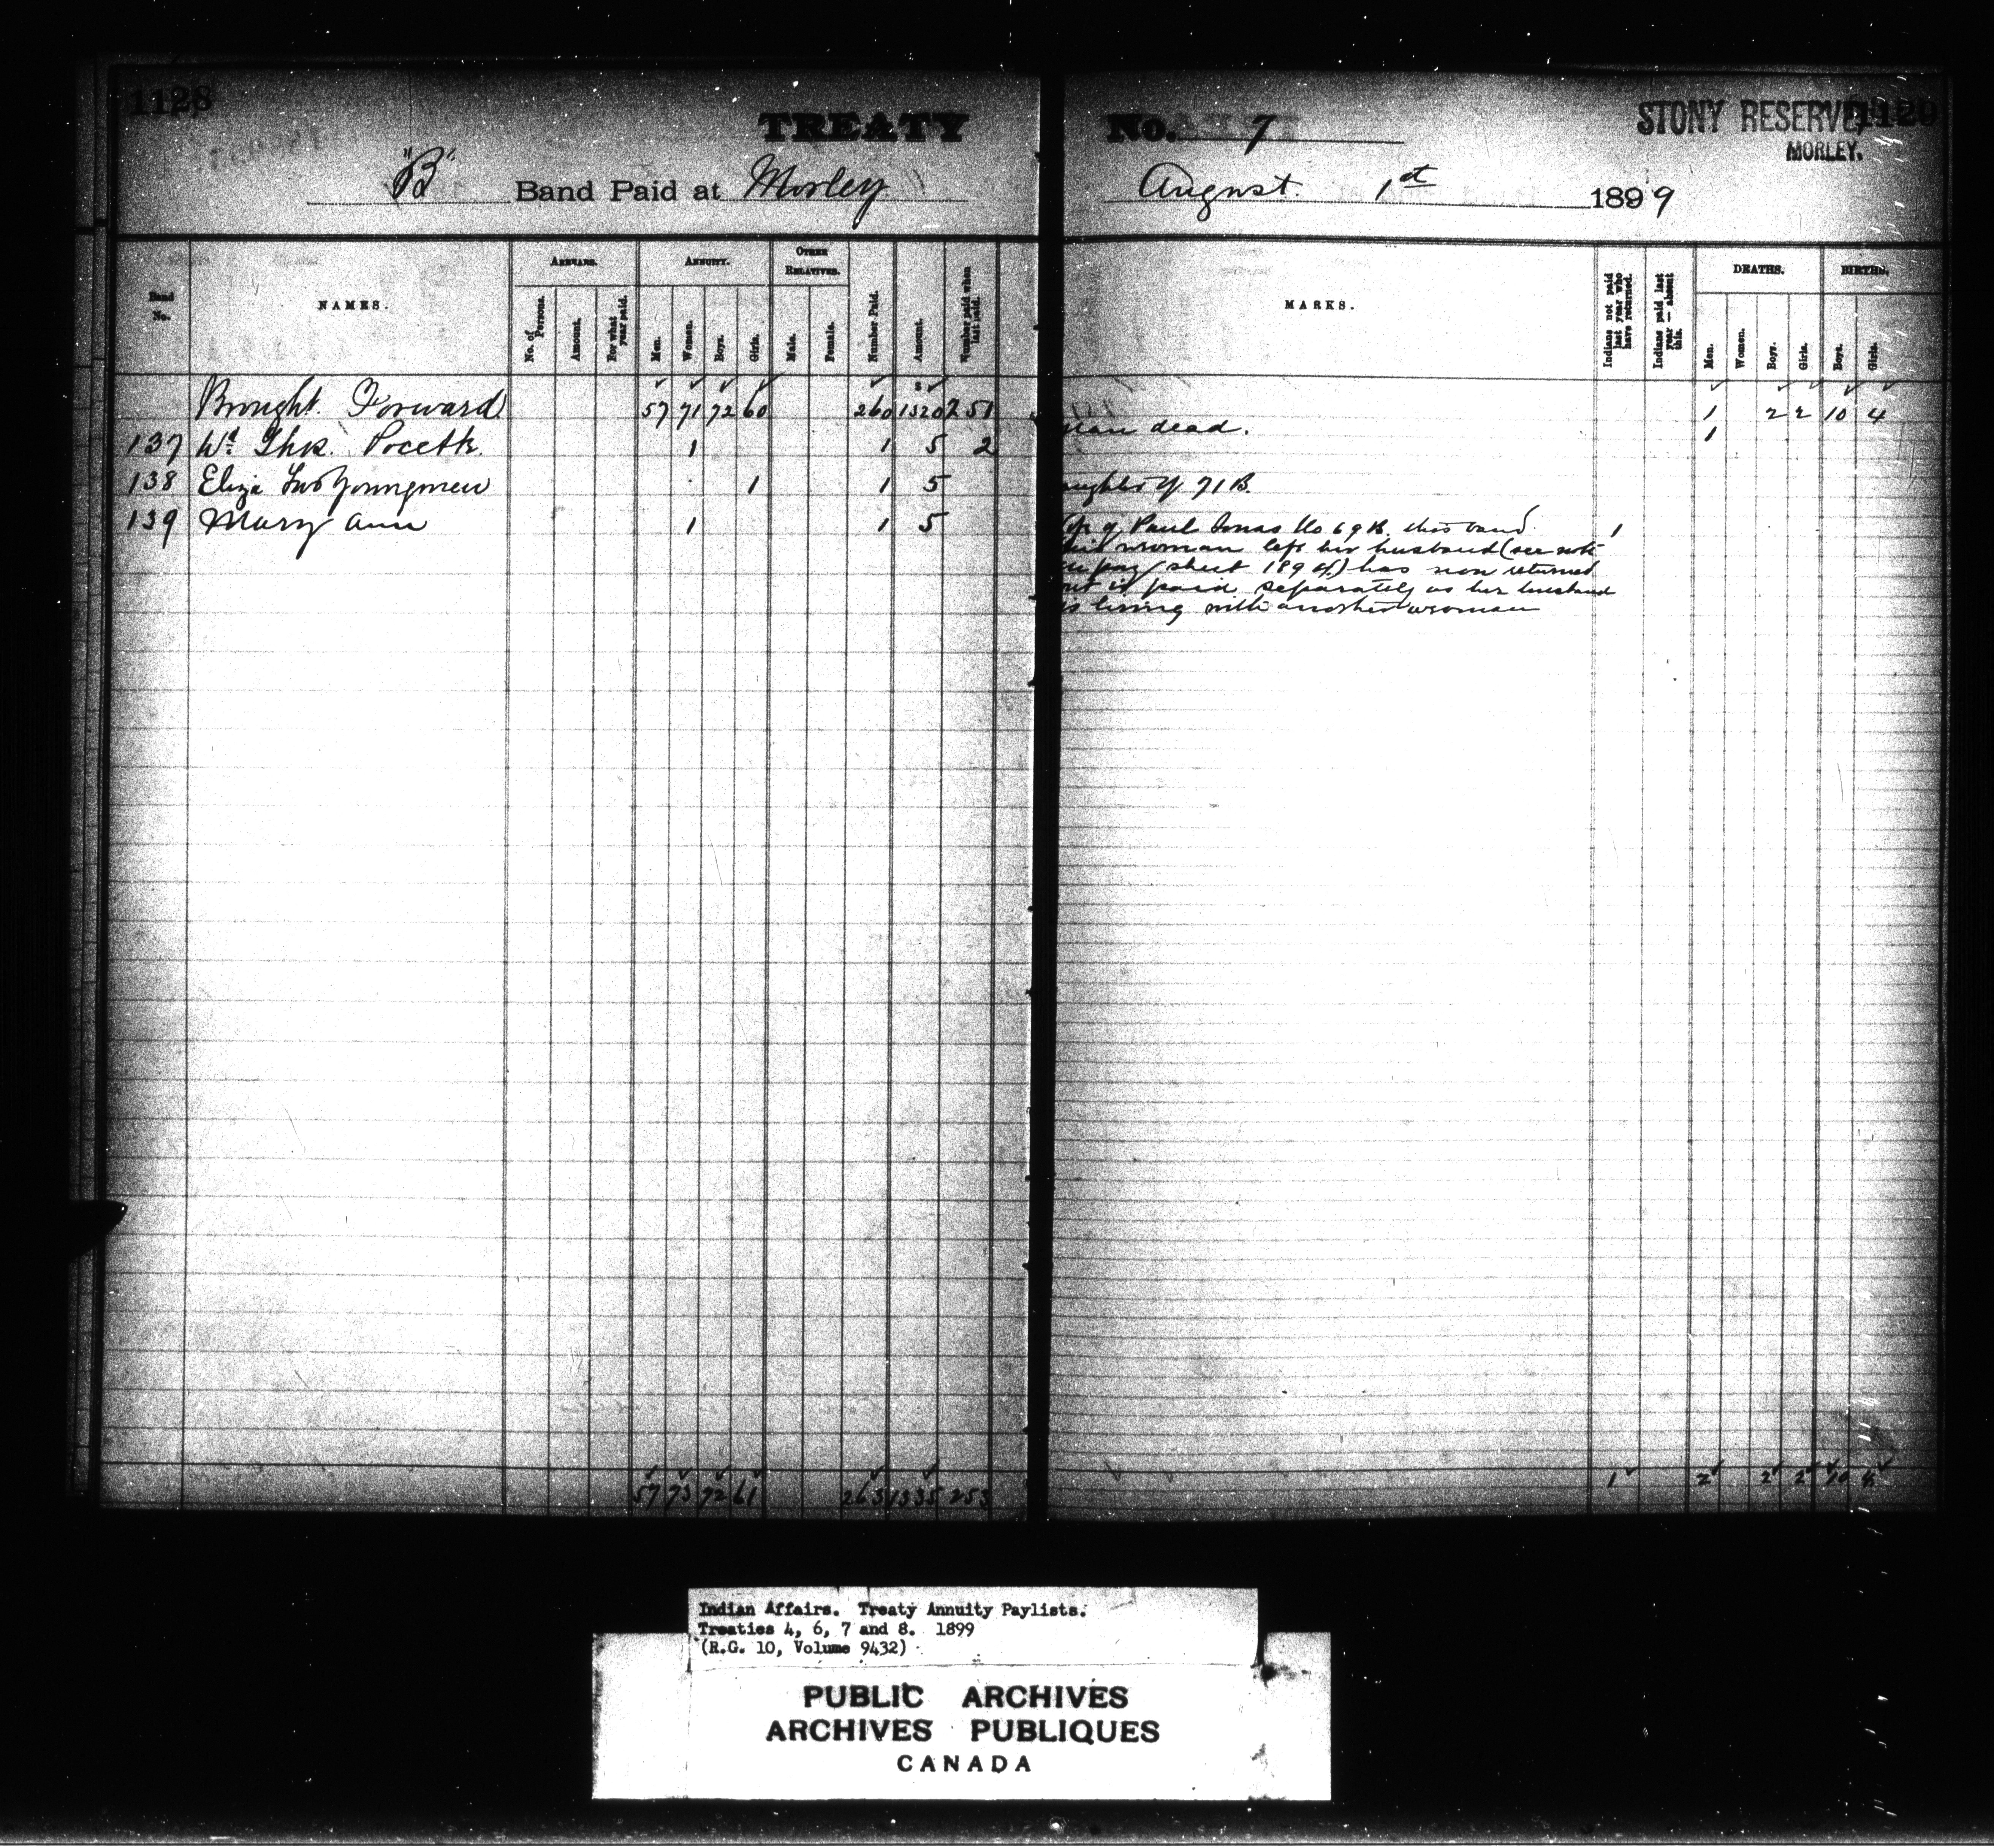 1128
TREATY
No. 7
STONY RESERVE,
MORLEY.
"B" Band Paid at Morley
August 1st 1899
Band No.
NAMES.
ARREARS.
No. of Persons.
Amount.
For what year paid.
ANNUITY.
Men.
Women.
Boys.
Girls.
OTHER RELATIVES.
Male.
Female.
Number Paid.
Amount.
Number paid when last paid.
MARKS.
Indians not paid last year who have returned.
Indians paid last year — absent this.
DEATHS.
Men.
Women.
Boys.
Girls.
BIRTHS.
Boys.
Girls.
Brought Forward 57 71 72 60 260 1320 251 1 2 2 10 4
137 Wd. 1 1 5 2 man dead. 1
138 Eliza Two Youngmen 1 1 5 of 71 B.
139 Mary Ann 1 1 5 of Paul Jonas No 69 B. this band 1
woman left her husband (see note
pay sheet 189 ) has now returned
is paid separately as her husband
is living with another woman
57 73 72 61 263 1335 253 1 2 2 2 10 4
Indian Affairs. Treaty Annuity Paylists.
Treaties 4, 6, 7 and 8. 1899
(R.G. 10, Volume 9432)
PUBLIC ARCHIVES
ARCHIVES PUBLIQUES
CANADA